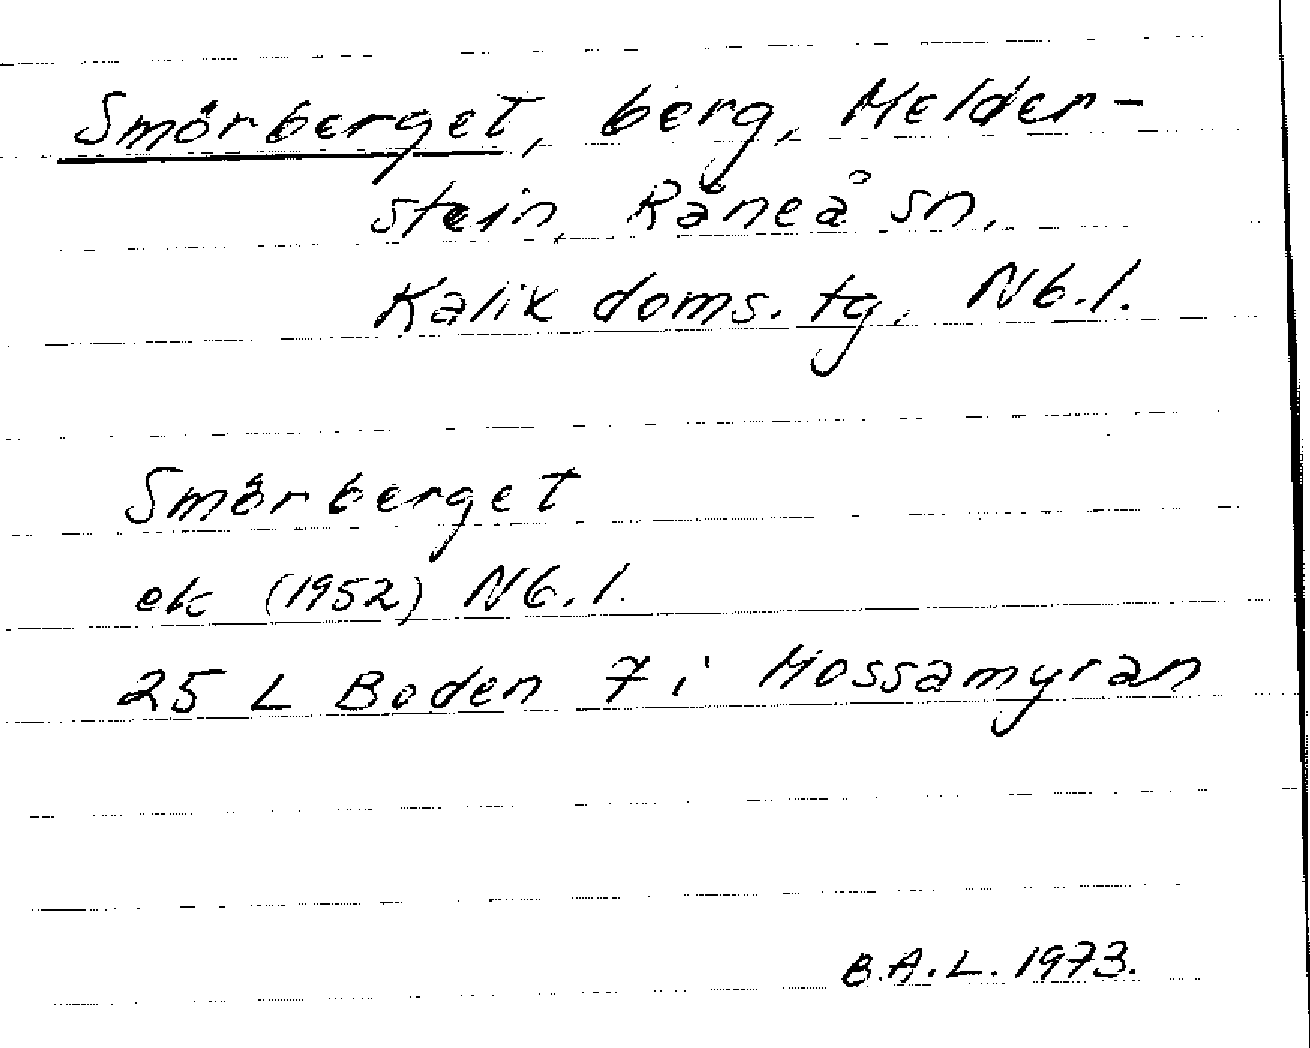 Smörberget, berg, Melder-
stein, Råneå sn,
Kalix doms. tg, Nb.l.
Smörberget
ek (1952) Nb.l.
25 L Boden 7 i Mossamyran
B.A.L. 1973.